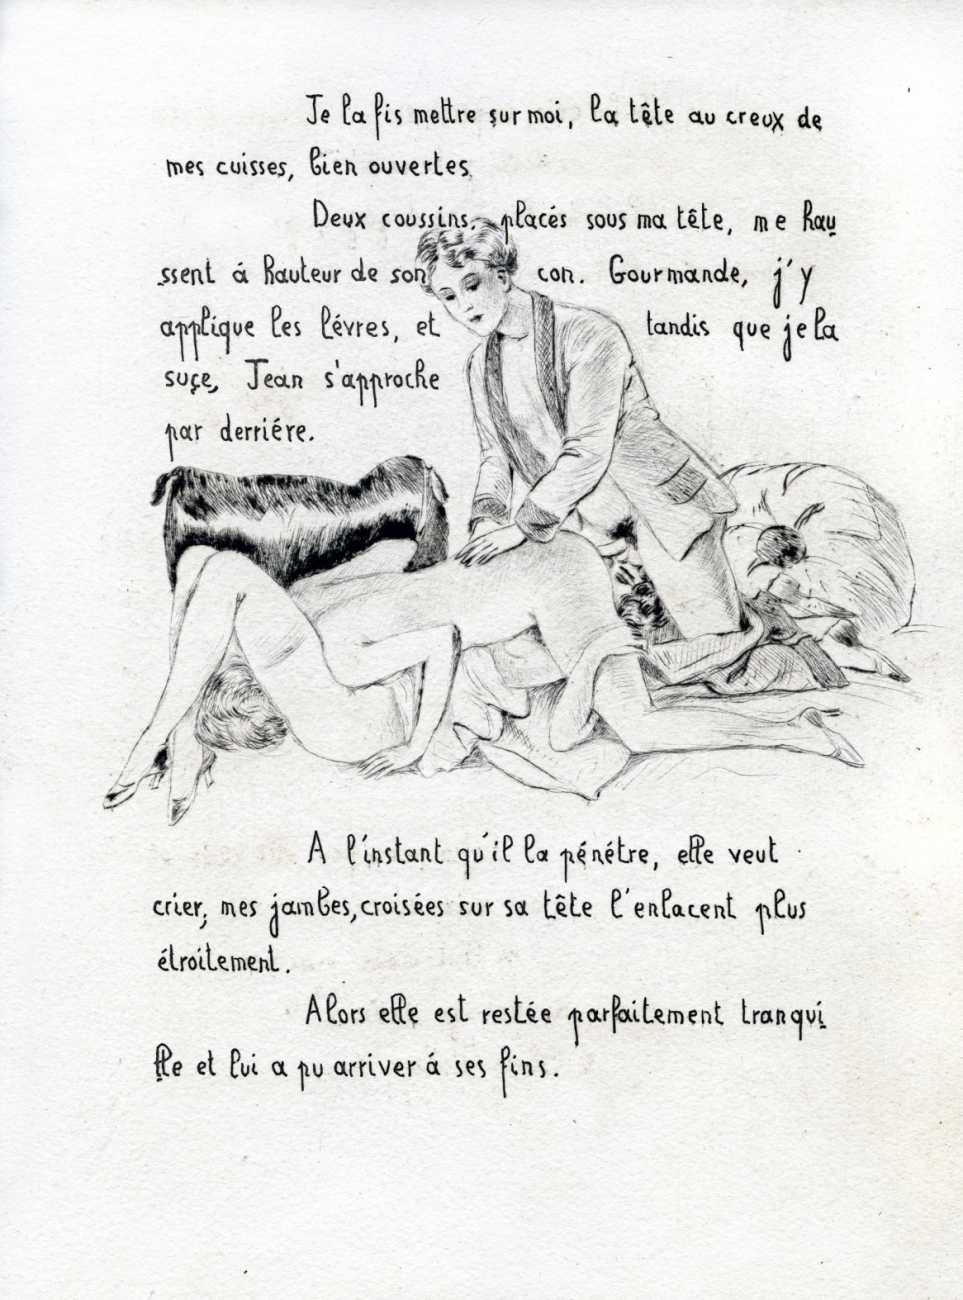 Je la fis mettre sur moi, la tête au creux de
mes cuisses, bien ouvertes.
Deux coussins, placés sous ma tête, me hau
ssent á hauteur de son con. Gourmande, j'y
applique les lévres, et tandis que je la
suçe, Jean s'approche
par derriére.
A l'instant qu'il la pénétre, elle veut
crier, mes jambes, croisées sur sa tête l'enlacent plus
étroitement.
Alors elle est restée parfaitement tranqui
lle et lui a pu arriver á ses fins.